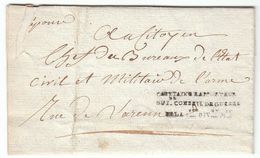 Au Citoyen
Chef du Bureau de l'Etat
Civil et Militaire de l'armée
Rue de Varenne
CAPITAINE RAPPORTEUR
DU I.er CONSEIL DE GUERRE
DE LA DIV.